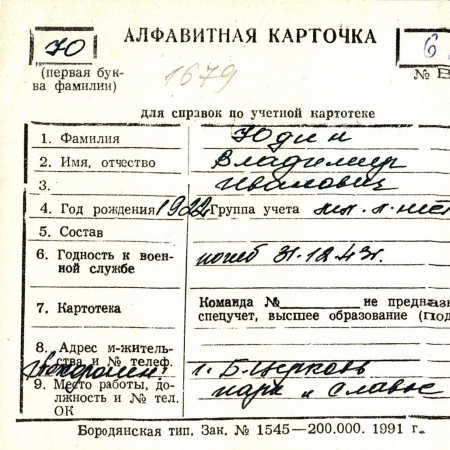 Ю
АЛФАВИТНАЯ КАРТОЧКА
6
(первая бук-
ва фамилии)
1679
№ В
для справок по учетной картотеке
1. Фамилия Юдин
2. Имя, отчество Владимир
3. Иванович
4. Год рождения 1922г Группа учета мл. л-нт
5. Состав
6. Годность к воен-
ной службе погиб 31.12.43г.
7. Картотека Команда №________ не предназ
спецучет, высшее образование (Под
8. Адрес м-житель-
ства и № телеф.
Похоронен: г. Б.Церковь
9. Место работы, до- парк "Слава"
должность и № тел.
ОК
Бородянская тип. Зак. № 1545—200.000. 1991 г.